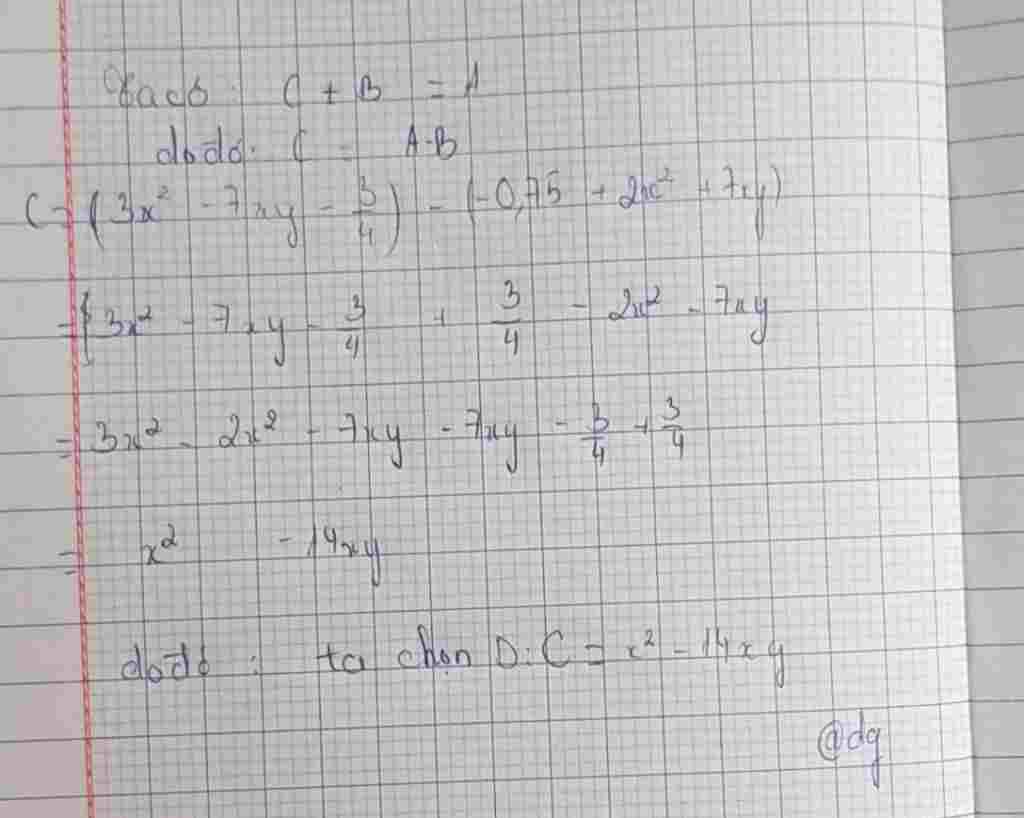 Ta có : C + B = A
do đó : C = A - B
C = (3x² - 7xy - 3/4) - (-0,75 + 2x² + 7xy)
= 3x² - 7xy - 3/4 + 3/4 - 2x² - 7xy
= 3x² - 2x² - 7xy - 7xy - 3/4 + 3/4
= x² - 14xy
do đó : ta chọn D : C = x² - 14xy
@dg